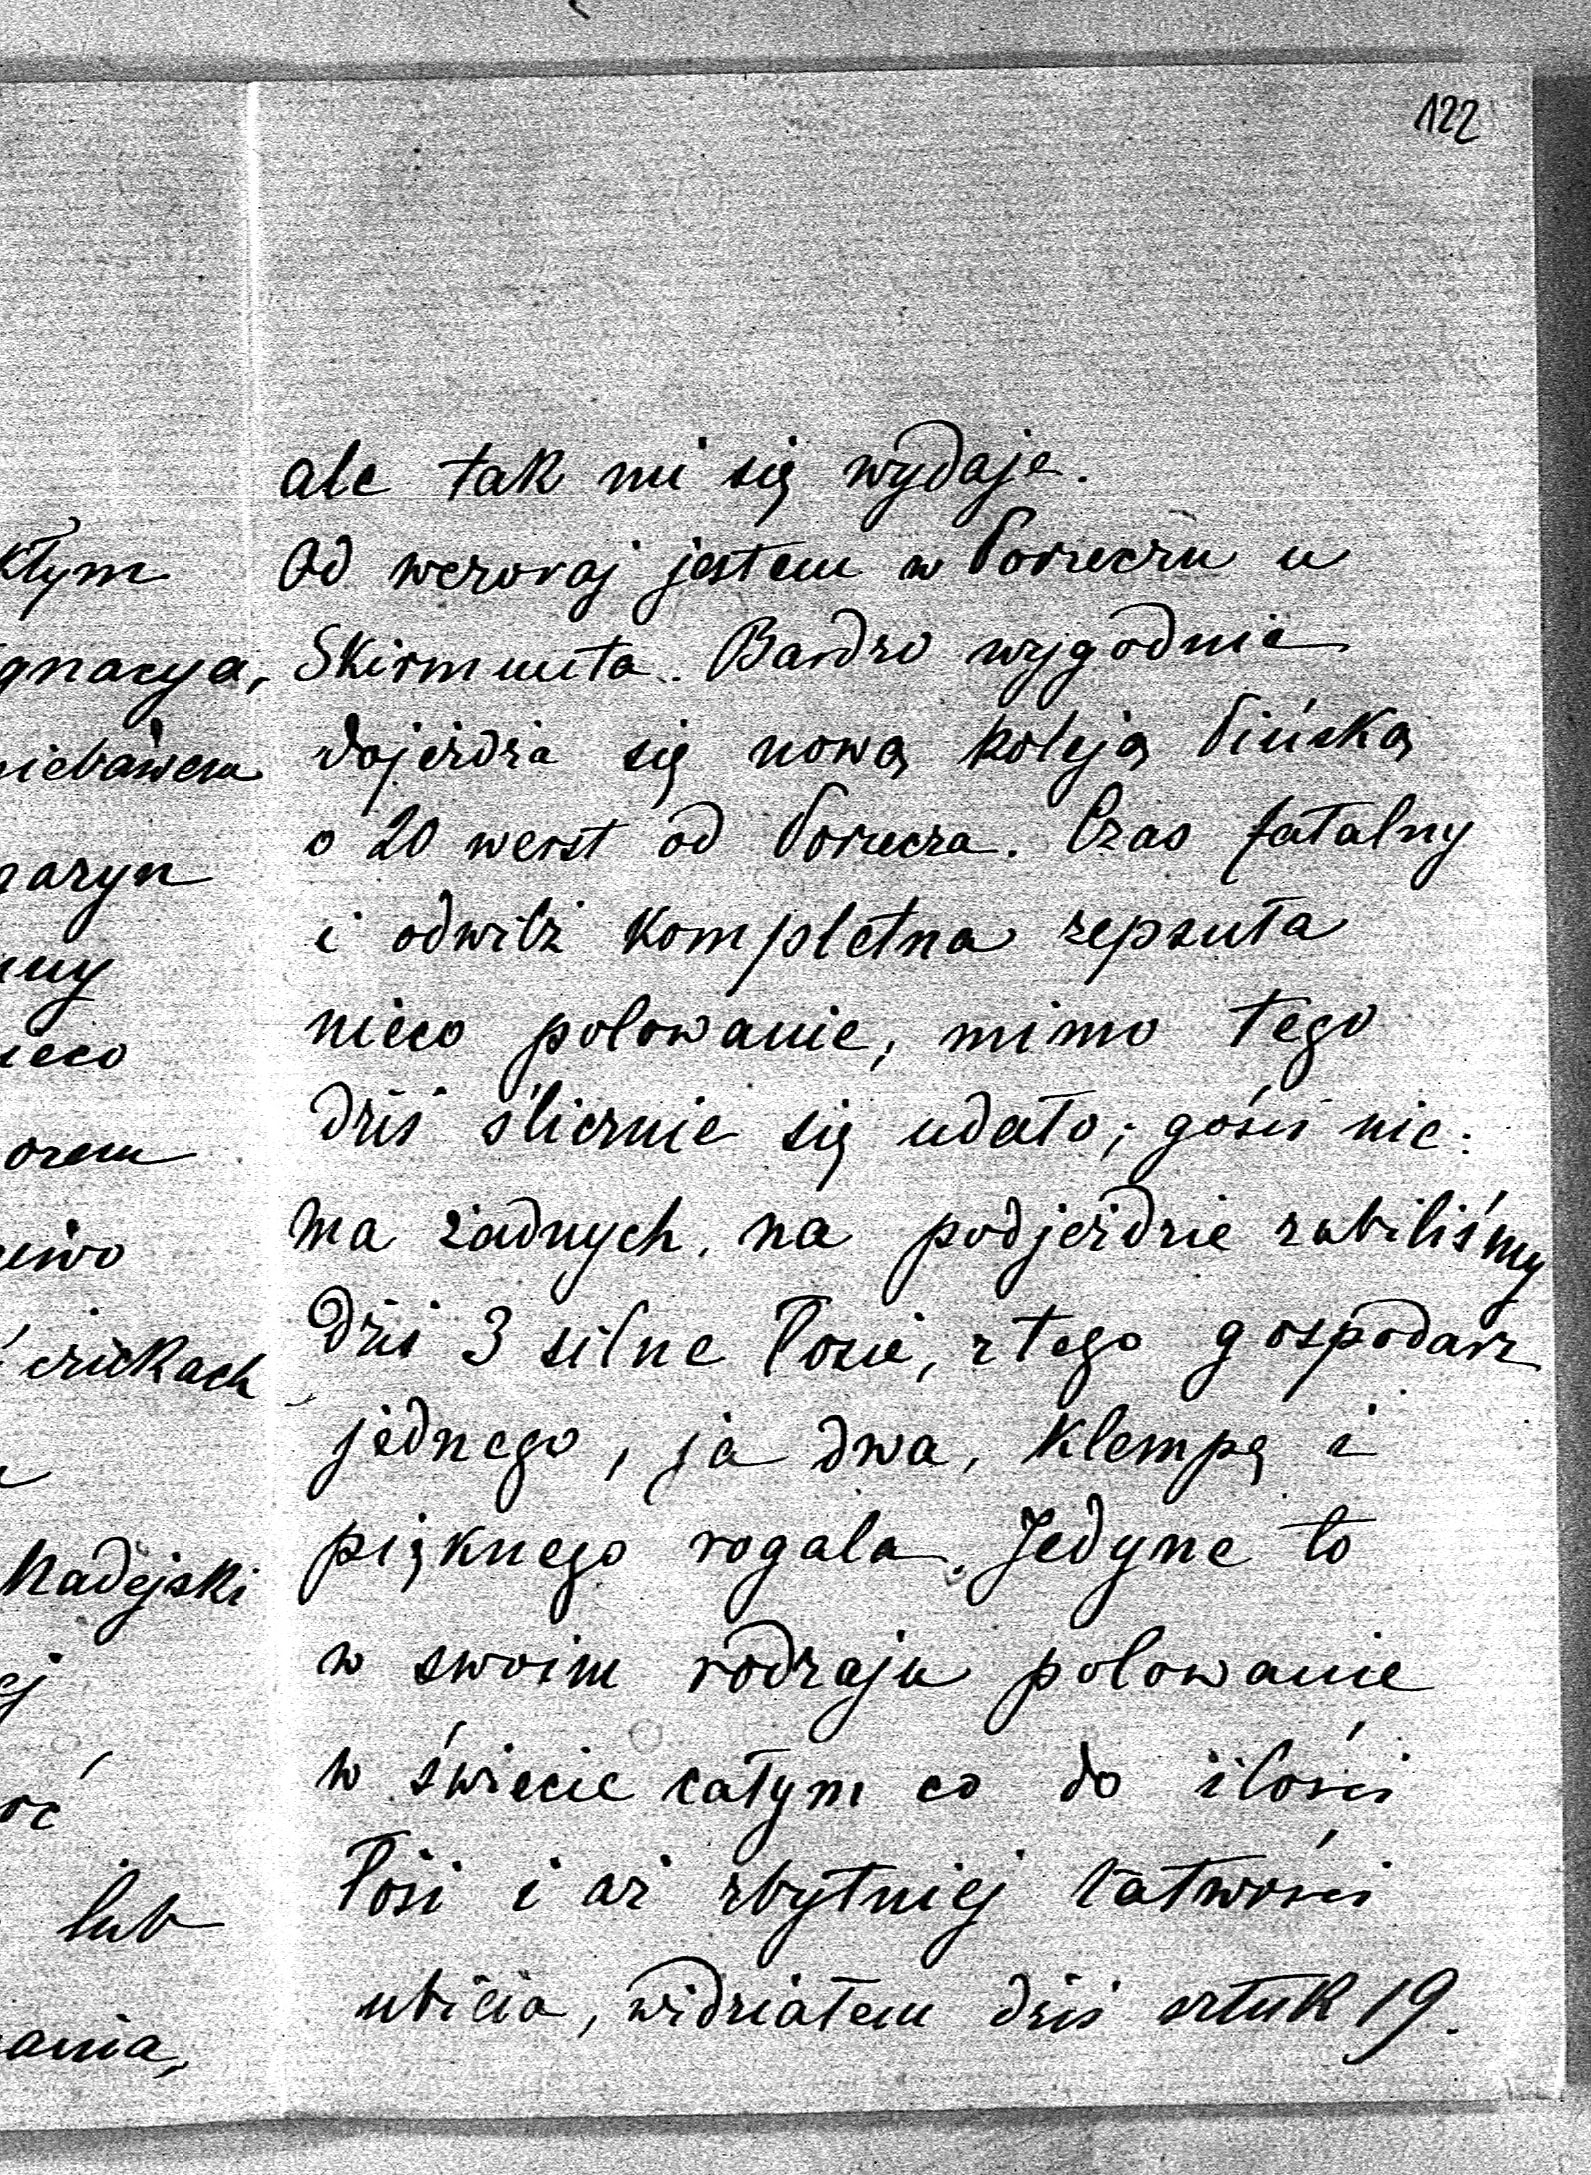 122
ale tak mi się wydaje.
Od wczoraj jestem w Porzeczu u
Skirmunta. Bardzo wygodnie
dojeżdża się nową koleją Pińską
o 20 werst od Porzecza. Czas fatalny
i odwilż kompletna zepsuła
nieco polowanie, mimo tego
dziś ślicznie się udało; gości nie:
ma żadnych, na podjeździe zabiliśmy
dziś 3 silne łosie, z tego gospodarz
jednego, ja dwa, klempę i
pięknego rogala. Jedyne to
w swoim rodzaju polowanie
w świecie całym co do ilości
łosi i aż zbytniej łatwości
ubicia, widziałem dziś sztuk 19.
kłym
gnacya,
niebawem
nazyn
ieco
orem
czickach
Madejski
ej
lub
ania,